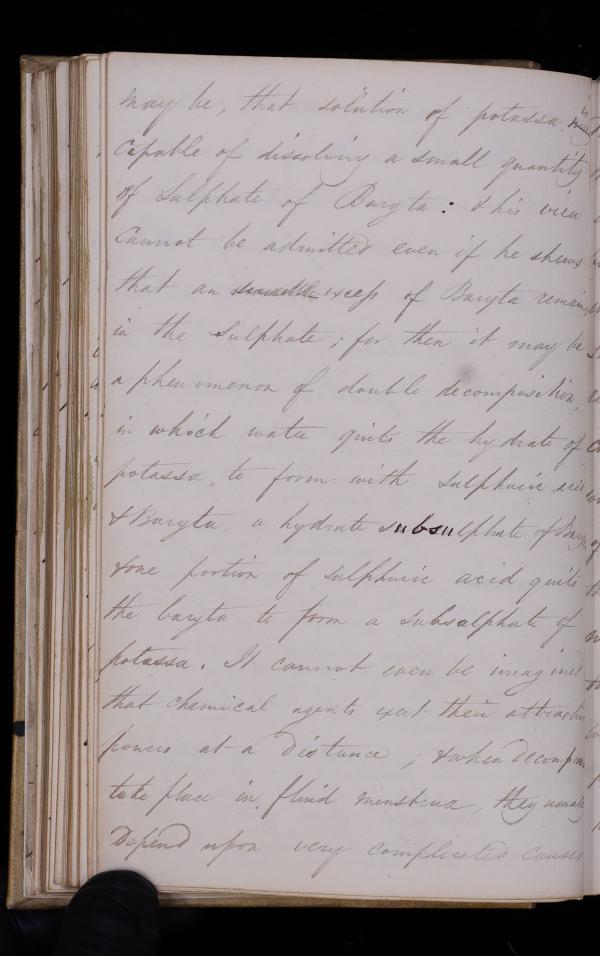 may be, that solution of potassa is
capable of dissolving a small quantity
of Sulphate of Baryta: & his view
cannot be admitted even if he shews
that an sensible excess of Baryta remains
in the Sulphate; for then it may be
a phenomenon of double decomposition,
in which water quits the hydrate of
potassa, to form with sulphuric acid
& Baryta, a hydrate subsulphate of Baryta
& one portion of sulphuric acid quits
the baryta to form a subsulphate of
potassa. It cannot even be imagined
that chemical agents exert their attractive
powers at a distance; & when decompns
take place in fluid menstrua, they usually
Depend upon very complicated causes